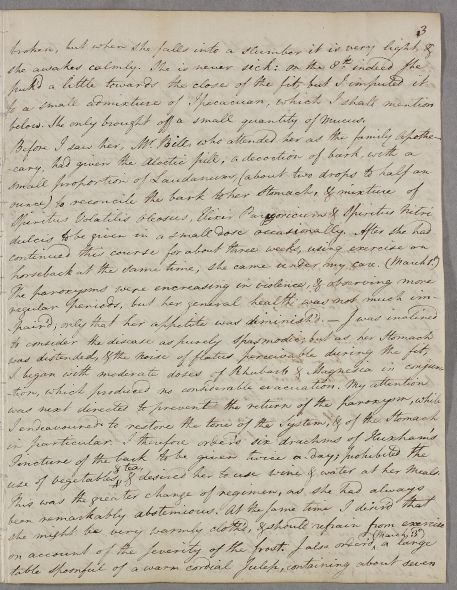 3
broken, but when she falls into a slumber it is very light, &
she awakes calmly. She is never sick: on the 8th indeed she
puk'd a little towards the close of the fit, but I imputed it
to a small admixture of Ipecacuan, which I shall mention
below. She only brought off a small quantity of mucus.
Before I saw her, Mr. who attended her as the family apothe-
cary, had given the Aloetic pill, a decoction of bark, with a
small proportion of Laudanum, (about two drops to half an
ounce) to reconcile the bark to her Stomach, & mixture of
Spiritus Volatilis oleosus, Elixir Paregoricum & Spiritus Nitri
dulcis, to be given in a small dose occasionally. After she had
continued this course for about three weeks, using exercise on
horseback at the same time, she came under my care. (March 1st)
The paroxysms were encreasing in violence, & observing more
regular periods, but her general health was not much im-
paired; only that her appetite was diminish'd. — I was inclined
to consider the disease as purely spasmodic; but as her Stomach
was distended, & the noise of flatus perceivable during the fit,
I began with moderate doses of Rhubarb & Magnesia in conjunc-
tion, which produced no considerable evacuation. My attention
was next directed to prevent the return of the paroxysm, while
I endeavoured to restore the tone of the System, & of the Stomach
in particular. I therefore order'd six drachms of Huxham's
Tincture of the bark to be given twice a day; prohibited the
use of vegetables & tea, & desired her to use wine & water at her Meals.
This was the greater change of regimen, as she had always
been remarkably abstemious. At the same time I desired that
she might be very warmly clothed, & should refrain from exercise
on account of the severity of the frost. I also order'd, (March 5th) a large
table spoonful of a warm cordial Julep, containing about seven